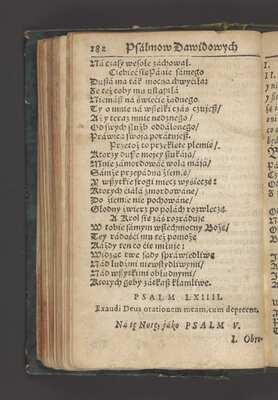 182 Psalmow Dawidowych
Na czásy wesołe záchował.
Ciebieć się Pánie sámego
Duszá ma ták mocna chwyciłá:
Że też toby mu ustąpiłá
Niemász ná świecie żadnego.
Ty o mnie ná wszelki czás czujesz/
A z y teraz mnie nędznego/
Od swych służb oddalonego/
Práwicą swoją porátujesz.
Przetoż to przeklęte plemię/
Ktorzy dusze mojey szukáją/
Mnie zámordowáć wolą máją/
Sámże przepádną ziemię/
Y wszytkie srogi miecz wysiecze:
Ktorych ciáłá zmordowáne/
Do ziemie nie pochowáne/
Głodny zwierz po polách rozwlecze.
A Krol się záś rozráduje
W tobie sámym wszechmocny Boże/
Tey rádości mu też pomoże
Káżdy ten co cie miłuje:
Widząc twe sądy spráwiedliwe
Nád ludźmi niewstydliwymi/
Nád wszytkimi obłudnymi/
Ktorych gęby záćkasz kłamliwe.
PSALM LXIIII.
Exaudi Deus orationem meam, cum deprecor.
Ná tę Notę, jáko PSALM V.
1. Obro-